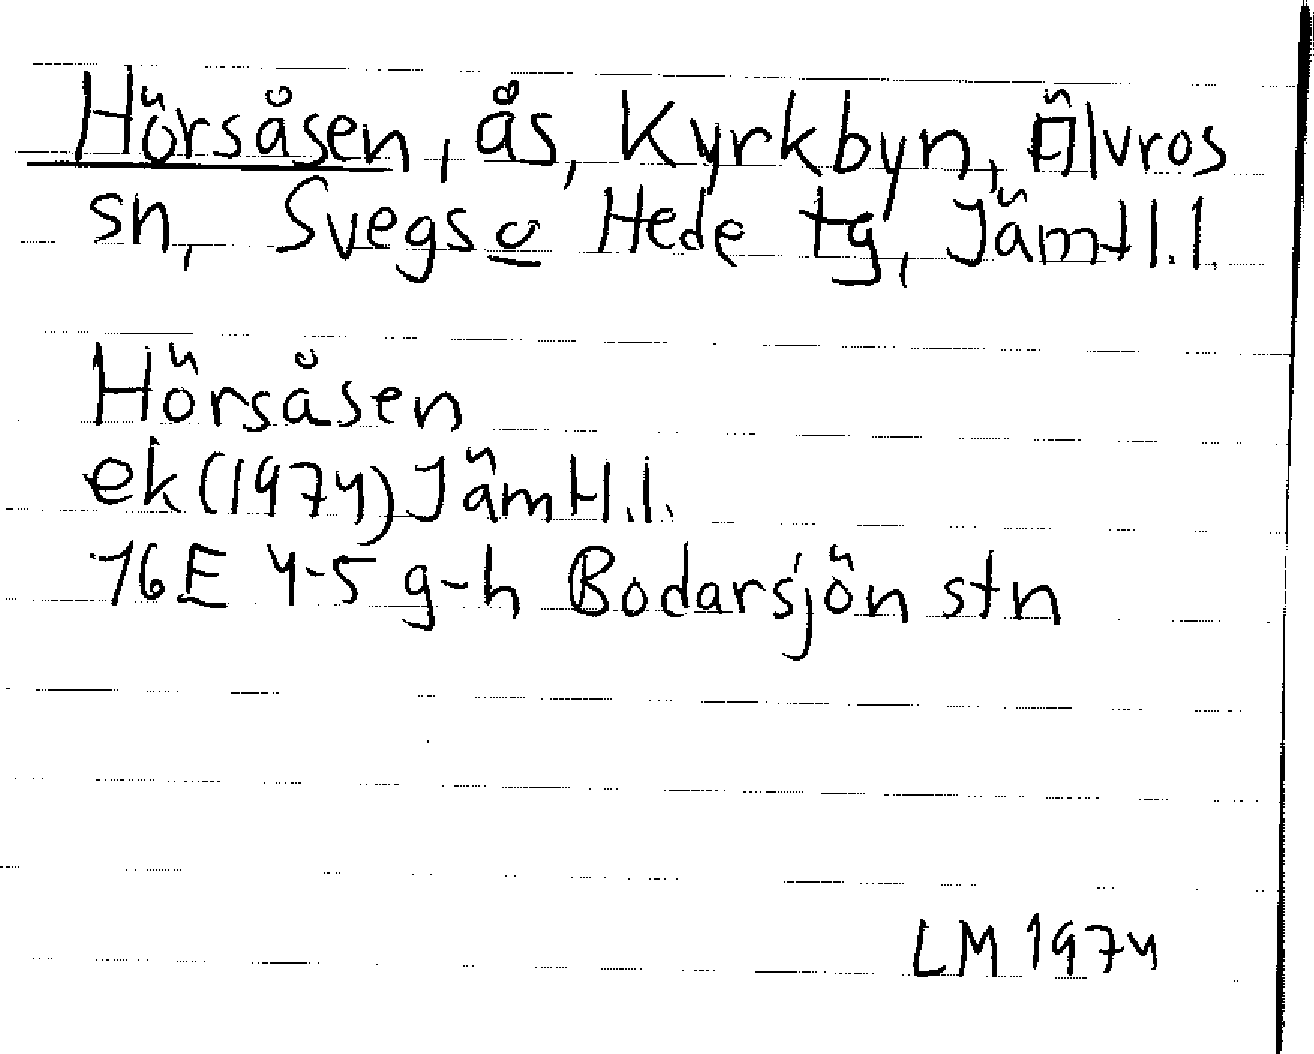 Hörsåsen, ås, Kyrkbyn, Älvros
sn, Svegs o Hede tg, Jämtl.l.
Hörsåsen
ek (1974) Jämtl.l.
16E 4-5 g-h Bodarsjön stn
LM 1974